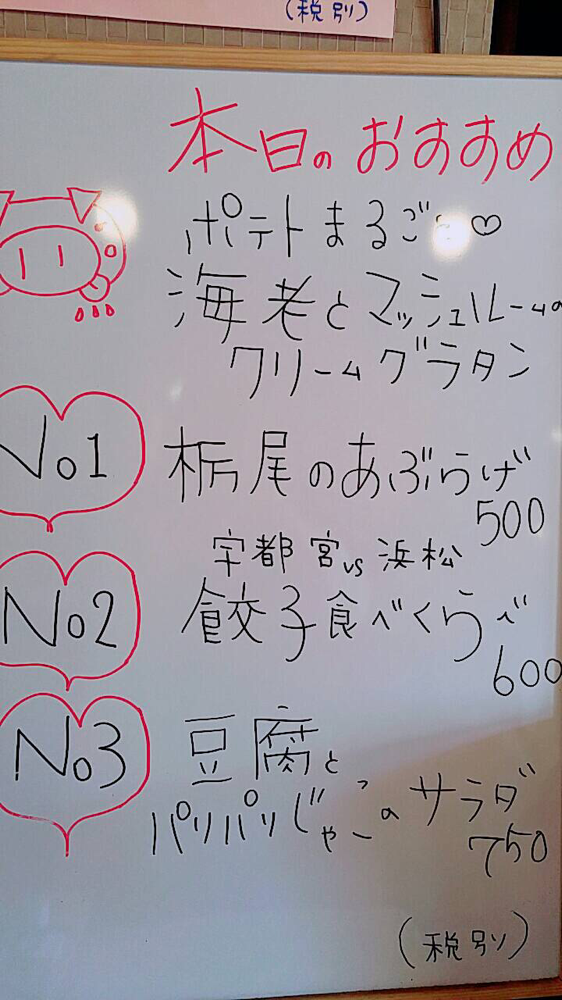 (税別)
本日のおすすめ
ポテトまるごと♡
海老とマッシュルームの
クリームグラタン
No1
栃尾のあぶらげ
500
宇都宮vs浜松
No2
餃子食べくらべ
600
No3
豆腐と
パリパリじゃこのサラダ
750
(税別)